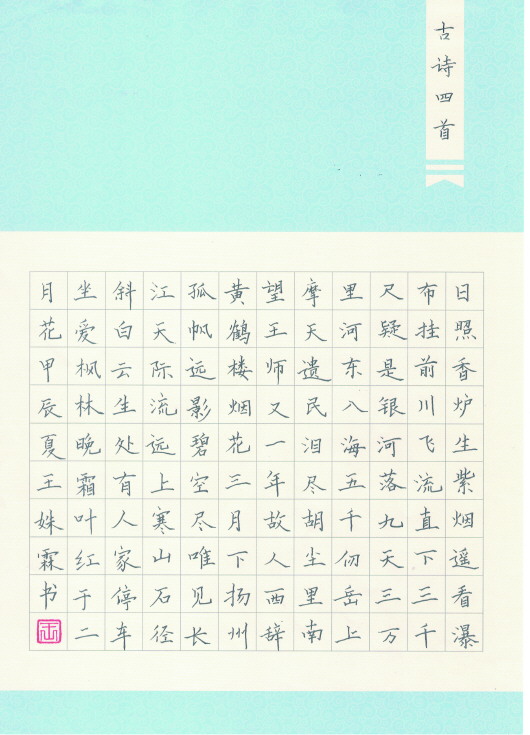 古诗四首
日照香炉生紫烟遥看瀑
布挂前川飞流直下三千
尺疑是银河落九天三万
里河东入海五千仞岳上
摩天遗民泪尽胡尘里南
望王师又一年故人西辞
黄鹤楼烟花三月下扬州
孤帆远影碧空尽唯见长
江天际流远上寒山石径
斜白云生处有人家停车
坐爱枫林晚霜叶红于二
月花甲辰夏王姝霖书